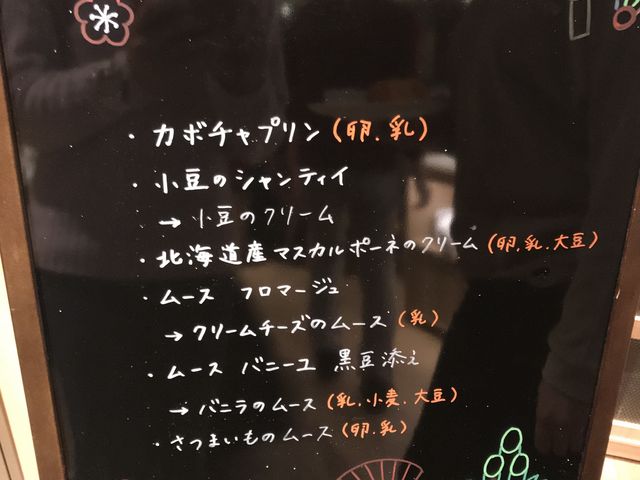 ・カボチャプリン(卵.乳)
・小豆のシャンティイ
→小豆のクリーム
・北海道産マスカルポーネのクリーム(卵.乳.大豆)
・ムース フロマージュ
→クリームチーズのムース(乳)
・ムース バニーユ 黒豆添え
→バニラのムース(乳.小麦.大豆)
・さつまいものムース(卵.乳)